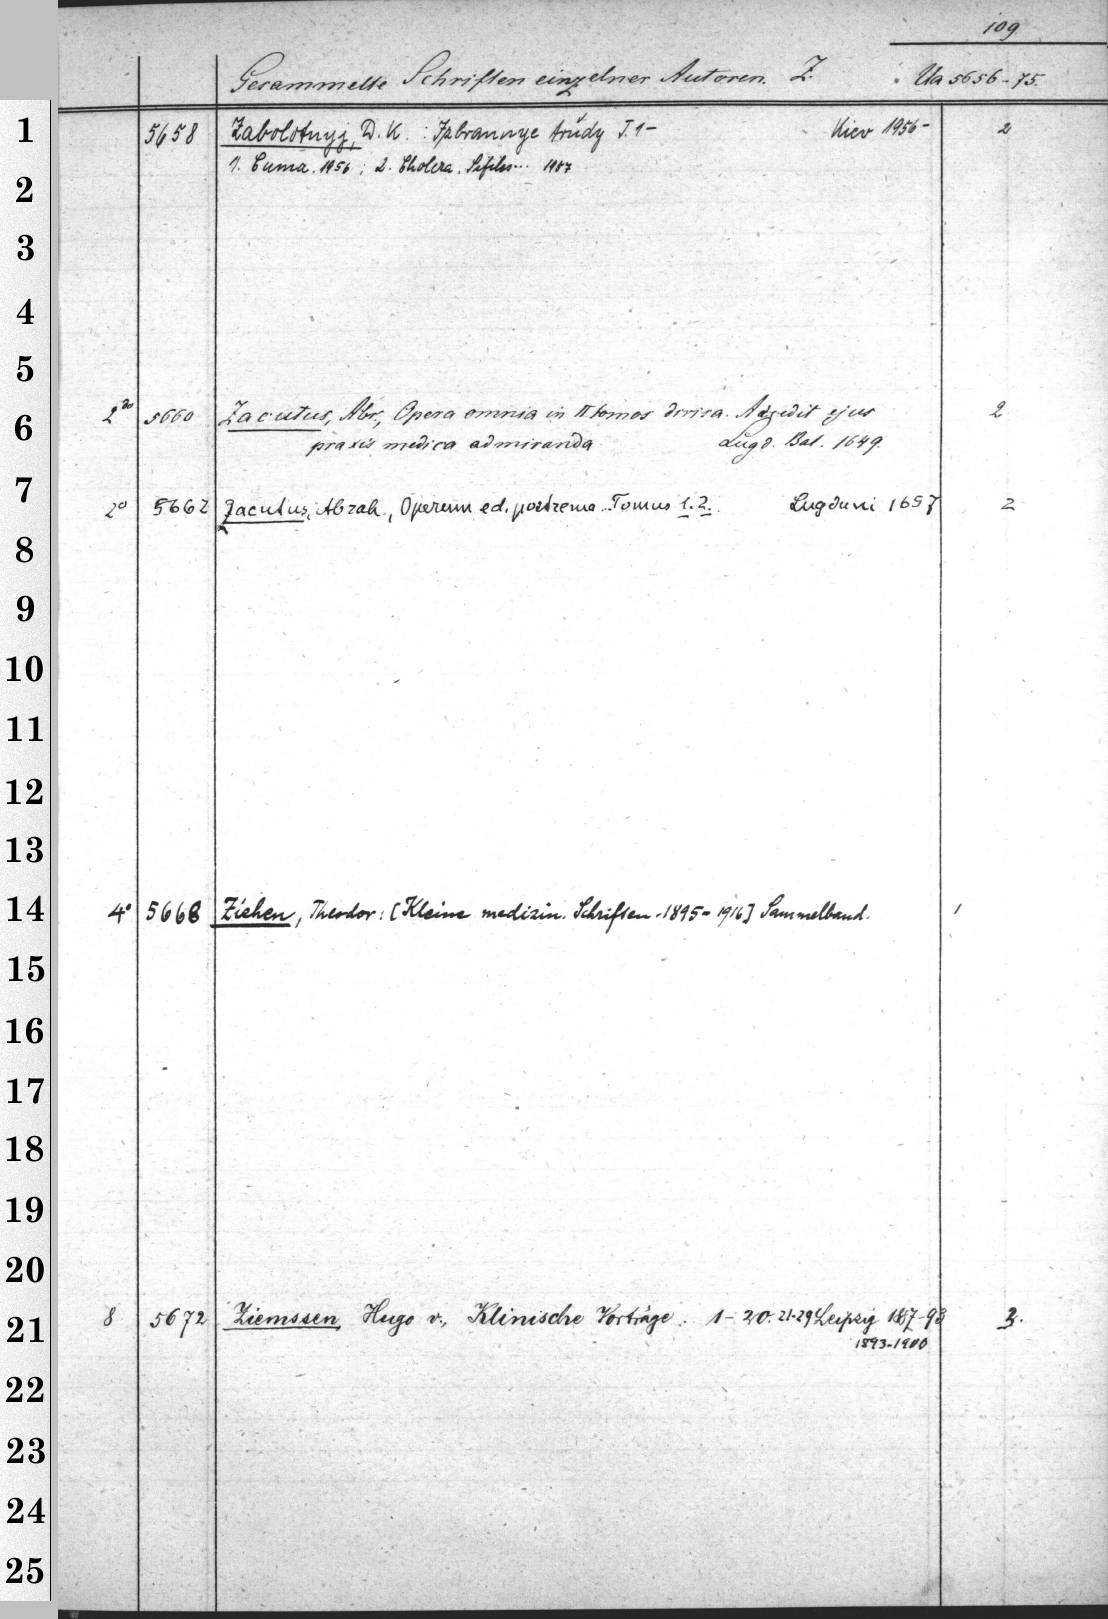 109
Gesammelte Schriften einzelner Autoren. Z. Ua 5656-75.
1 5658 Zabolotnyj, D. K. : Izbrannye trúdy T. 1- Kiev 1956- 2
2 1. Čuma. 1956 ; 2. Cholera. Sifilis... 1957
3
4
5
6 2° 5660 Zacutus, Abr., Opera omnia in II tomos divisa. Accedit ejus 2
praxis medica admiranda Lugd. Bat. 1649.
7 2° 5662 Zacutus, Abrah., Operum ed. postrema. Tomus 1. 2. Lugduni 1657 2
8
9
10
11
12
13
14 4° 5668 Ziehen, Theodor: [Kleine medizin. Schriften. 1895-1916] Sammelband. 1
15
16
17
18
19
20
21 8 5672 Ziemssen, Hugo v., Klinische Vorträge. 1-20. 21-29 Leipzig 1887-93 3.
1893-1900
22
23
24
25